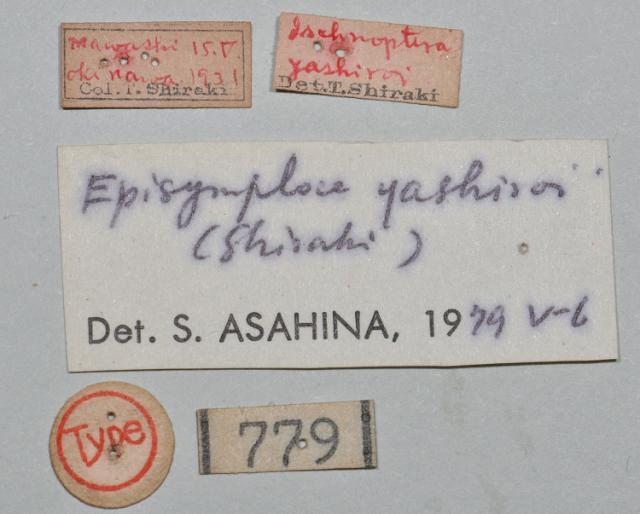 Mawashi 15.V.
Okinawa 1931
Col. T. Shiraki
Ischnoptera
yashiroi
Det. T. Shiraki
Episymploce yashiroi
(Shiraki)
Det. S. ASAHINA, 1979 V-6
Type
779